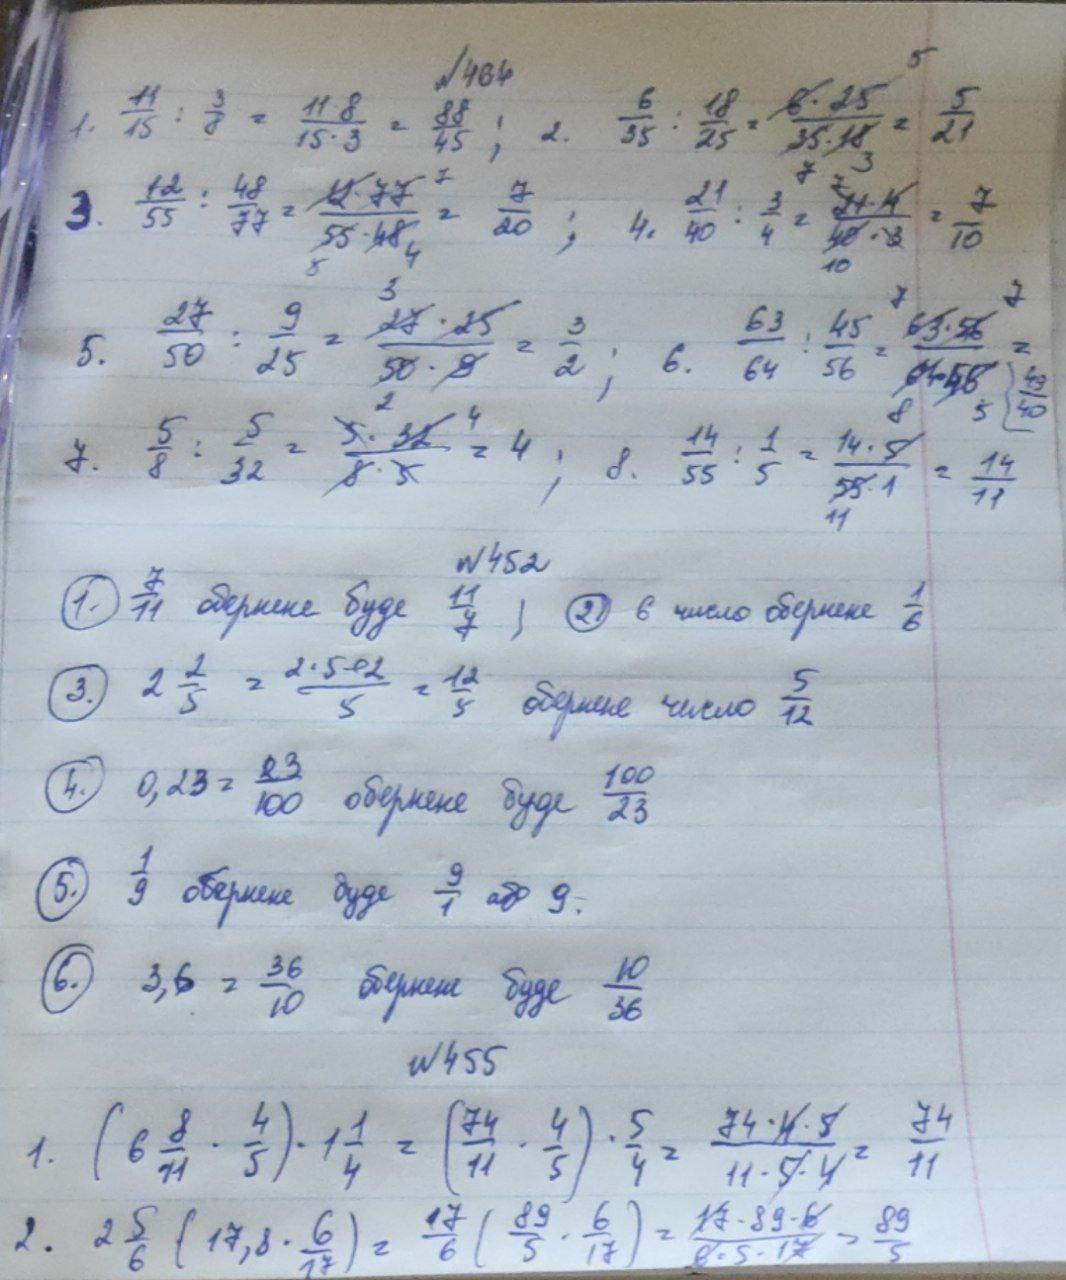 №464
1. 11/15 : 3/8 = 11·8/15·3 = 88/45 ; 2. 6/35 : 18/25 = 6·25/35·18 = 5/21
3. 12/55 : 48/77 = 12·77/55·48 = 7/20 ; 4. 21/40 : 3/4 = 21·4/40·3 = 7/10
5. 27/50 : 9/25 = 27·25/50·9 = 3/2 ; 6. 63/64 : 45/56 = 63·56/64·45 = 49/40
7. 5/8 : 5/32 = 5·32/8·5 = 4 ; 8. 14/55 : 1/5 = 14·5/55·1 = 14/11
№452
1. 7/11 обернене буде 11/7 ; 2) 6 число обернене 1/6
3. 2 2/5 = 2·5+2/5 = 12/5 обернене число 5/12
4. 0,23 = 23/100 обернене буде 100/23
5. 1/9 обернене буде 9/1 або 9.
6. 3,6 = 36/10 обернене буде 10/36
№455
1. (6 8/11 · 4/5) · 1 1/4 = (74/11 · 4/5) · 5/4 = 74·4·5/11·5·4 = 74/11
2. 2 5/6 (17,8 · 6/17) = 17/6 (89/5 · 6/17) = 17·89·6/6·5·17 = 89/5